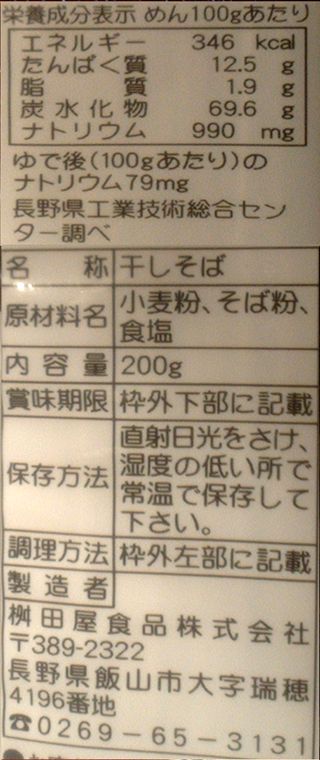 栄養成分表示 めん100gあたり
エネルギー 346 kcal
たんぱく質 12.5 g
脂質 1.9 g
炭水化物 69.6 g
ナトリウム 990 mg
ゆで後(100gあたり)の
ナトリウム79mg
長野県工業技術総合セン
ター調べ
名称 干しそば
原材料名 小麦粉、そば粉、
食塩
内容量 200g
賞味期限 枠外下部に記載
保存方法 直射日光をさけ、
湿度の低い所で
常温で保存して
下さい。
調理方法 枠外左部に記載
製造者
桝田屋食品株式会社
〒389-2322
長野県飯山市大字瑞穂
4196番地
☎0269-65-3131